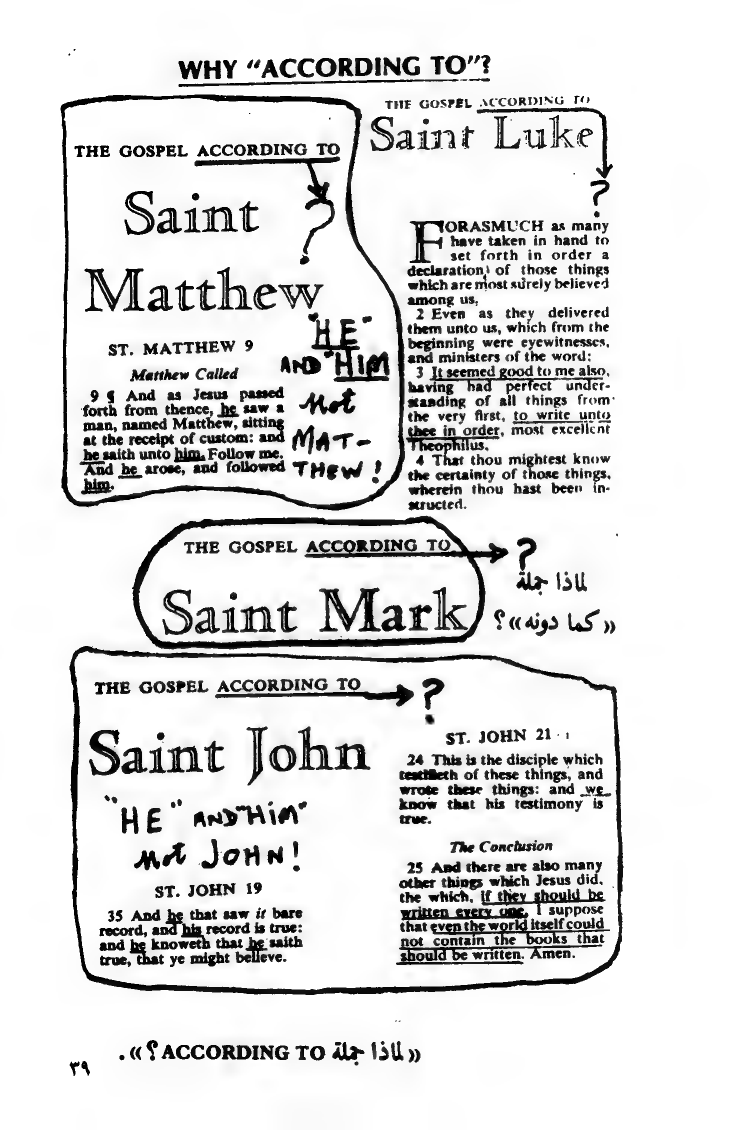 WHY “ACCORDING TO”?
THE GOSPEL ACCORDING TO
Saint
Matthew
?
ST. MATTHEW 9
Matthew Called
9 ¶ And as Jesus passed
forth from thence, he saw a
man, named Matthew, sitting
at the receipt of custom: and
he saith unto him, Follow me.
And he arose, and followed
him.
"HE"
AND "HIM
Not
MAT-
THEW!
THE GOSPEL ACCORDING TO
Saint Luke
?
FORASMUCH as many
have taken in hand to
set forth in order a
declaration of those things
which are most surely believed
among us,
2 Even as they delivered
them unto us, which from the
beginning were eyewitnesses,
and ministers of the word:
3 It seemed good to me also,
having had perfect under-
standing of all things from
the very first, to write unto
thee in order, most excellent
Theophilus,
4 That thou mightest know
the certainty of those things,
wherein thou hast been in-
structed.
THE GOSPEL ACCORDING TO
Saint Mark
?
لماذا جملة
«كما دونه»؟
THE GOSPEL ACCORDING TO
Saint John
?
"HE" AND "HiM"
Not JOHN!
ST. JOHN 19
35 And he that saw it bare
record, and his record is true:
and he knoweth that he saith
true, that ye might believe.
ST. JOHN 21
24 This is the disciple which
testifieth of these things, and
wrote these things: and we
know that his testimony is
true.
The Conclusion
25 And there are also many
other things which Jesus did,
the which, if they should be
written every one, I suppose
that even the world itself could
not contain the books that
should be written. Amen.
«لماذا جملة ACCORDING TO ؟».
٣٩